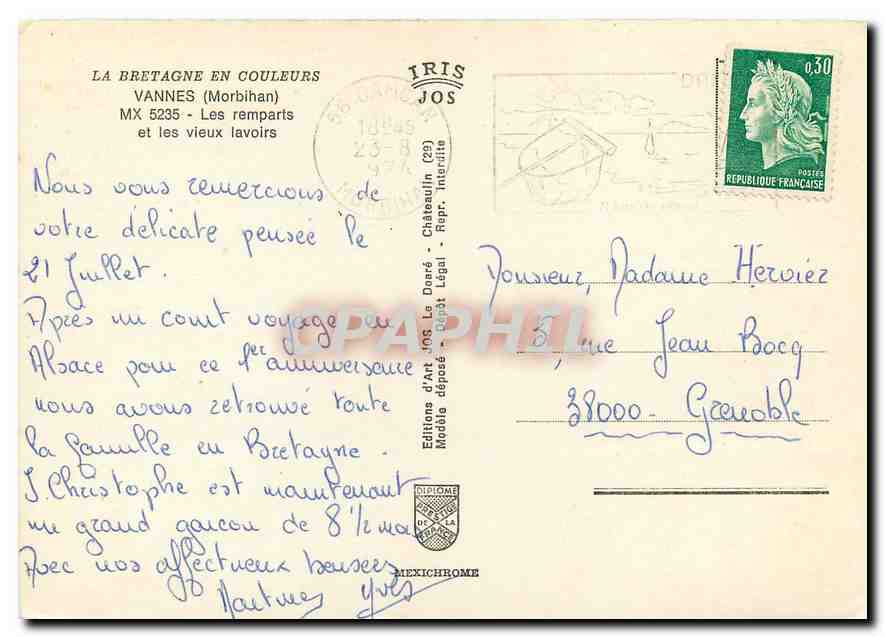 LA BRETAGNE EN COULEURS
VANNES (Morbihan)
MX 5235 - Les remparts
et les vieux lavoirs
Nous vous remercions de
votre délicate pensée le
21 Juillet.
Après un court voyage en
Alsace pour ce 1er anniversaire
nous avons retrouvé toute
la famille en Bretagne.
J. Christophe est maintenant
un grand garçon de 8 1/2 mois
Avec nos affectueux baisers
Yves
IRIS
JOS
Editions d'Art JOS Le Doaré - Châteaulin (29)
Modèle déposé - Dépôt Légal - Repr. Interdite
DIPLOME
PRESTIGE
DE LA
FRANCE
MEXICHROME
56
18H45
23-8
MORBIHAN
0,30
POSTES
REPUBLIQUE FRANÇAISE
Monsieur, Madame Hervier
5, rue Jean Bocq
38000 - Grenoble
CPAPHIL